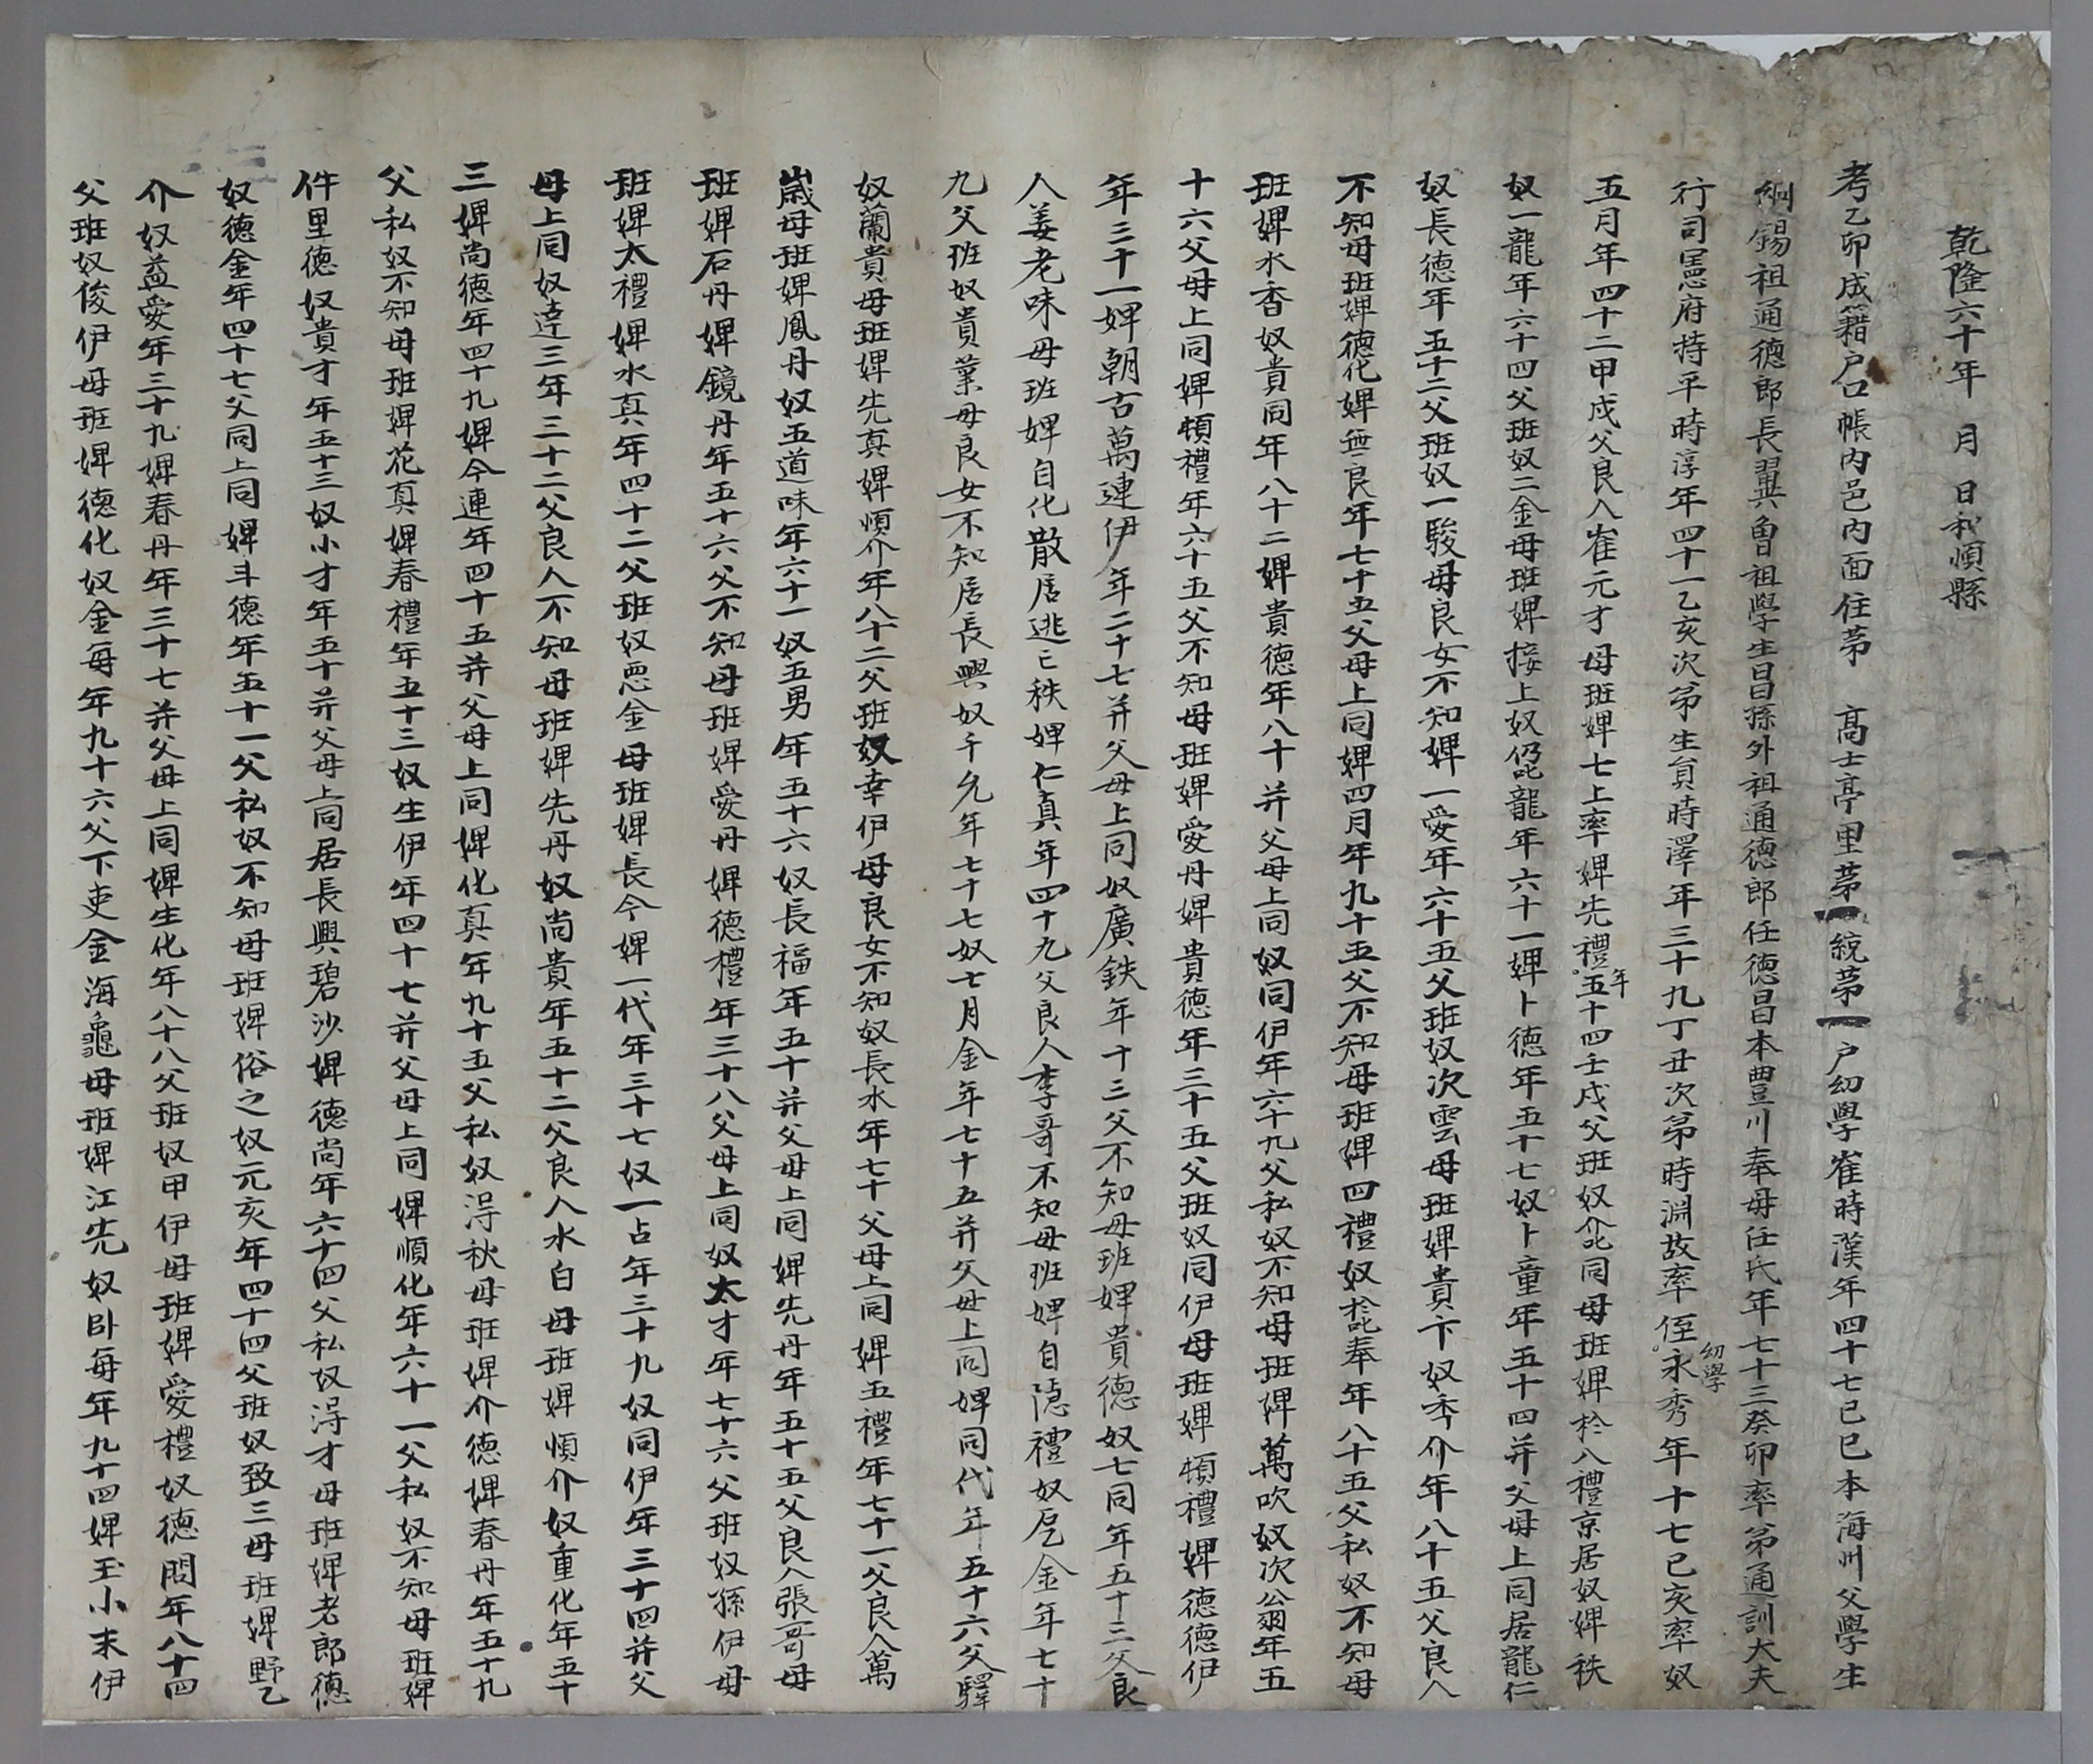 乾隆六十年 月 日和順縣
考乙卯成籍戶口帳內邑內面住苐 高士亭里苐一統苐一戶幼學崔時漢年四十七己巳本海州父學生
錫祖通德郞長翼曾祖學生昌孫外祖通德郞任德昌本豊川奉母任氏年七十三癸卯率弟通訓大夫
行司憲府持平時淳年四十一乙亥次弟生員時澤年三十九丁丑次弟時淵故率侄幼學永秀年十七己亥率奴
五月年四十二甲戌父良人崔元才母班婢七上率婢先禮年五十四壬戌父班奴同母班婢於八禮京居奴婢秩
奴一龍年六十四父班奴二金母班婢接上奴龍年六十一婢卜德年五十七奴卜童年五十四并父母上同居龍仁
奴長德年五十二父班奴一駿母良女不知婢一愛年六十五父班奴次雲母班婢貴卞奴季介年八十五父良人
不知母班婢德化婢無良年七十五父母上同婢四月年九十五父不知母班婢四禮奴奉年八十五父私奴不知母
班婢水香奴貴同年八十二婢貴德年八十并父母上同奴同伊年六十九父私奴不知母班婢萬吹奴次翁年五
十六父母上同婢頓禮年六十五父不知母班婢愛丹婢貴德年三十五父班奴同伊母班婢頓禮婢德德伊
年三十一婢朝古萬連伊年二十七并父母上同奴廣鉄年十三父不知母班婢貴德奴七同年五十三父良
人姜老味母班婢自化散居逃亡秩婢仁真年四十九父良人李哥不知母班婢自隱禮奴金年七十
九父班奴貴業母良女不知居長興奴千允年七十七奴七月金年七十五并父母上同婢同代年五十六父驛
奴蘭貴母班婢先真婢順介年八十二父班奴幸伊母良女不知奴長水年七十父母上同婢五禮年七十一父良人萬
歲母班婢鳳丹奴五道味年六十一奴五男年五十六奴長福年五十并父母上同婢先丹年五十五父良人張哥母
班婢石丹婢鏡丹年五十六父不知母班婢愛丹婢德禮年三十八父母上同奴太才年七十六父班奴孫伊母
班婢太禮婢水真年四十二父班奴金母班婢長今婢一代年三十七奴一占年三十九奴同伊年三十四并父
母上同奴達三年三十二父良人不知母班婢先丹奴尚貴年五十二父良人水白母班婢順介奴重化年五十
三婢尚德年四十九婢今連年四十五并父母上同婢化真年九十五父私奴淂秋母班婢介德婢春丹年五十九
父私奴不知母班婢花真婢春禮年五十三奴生伊年四十七并父母上同婢順化年六十一父私奴不知母班婢
件里德奴貴才年五十三奴小才年五十并父母上同居長興碧沙婢德尚年六十四父私奴淂才母班婢老郞德
奴德金年四十七父同上同婢斗德年五十一父私奴不知母班婢俗之奴元亥年四十四父班奴致三母班婢野乙
介奴益愛年三十九婢春丹年三十七并父母上同婢生化年八十八父班奴甲伊母班婢愛禮奴德悶年八十四
父班奴俊伊母班婢德化奴金每年九十六父下吏金海龜母班婢江先奴卧每年九十四婢玉小末伊